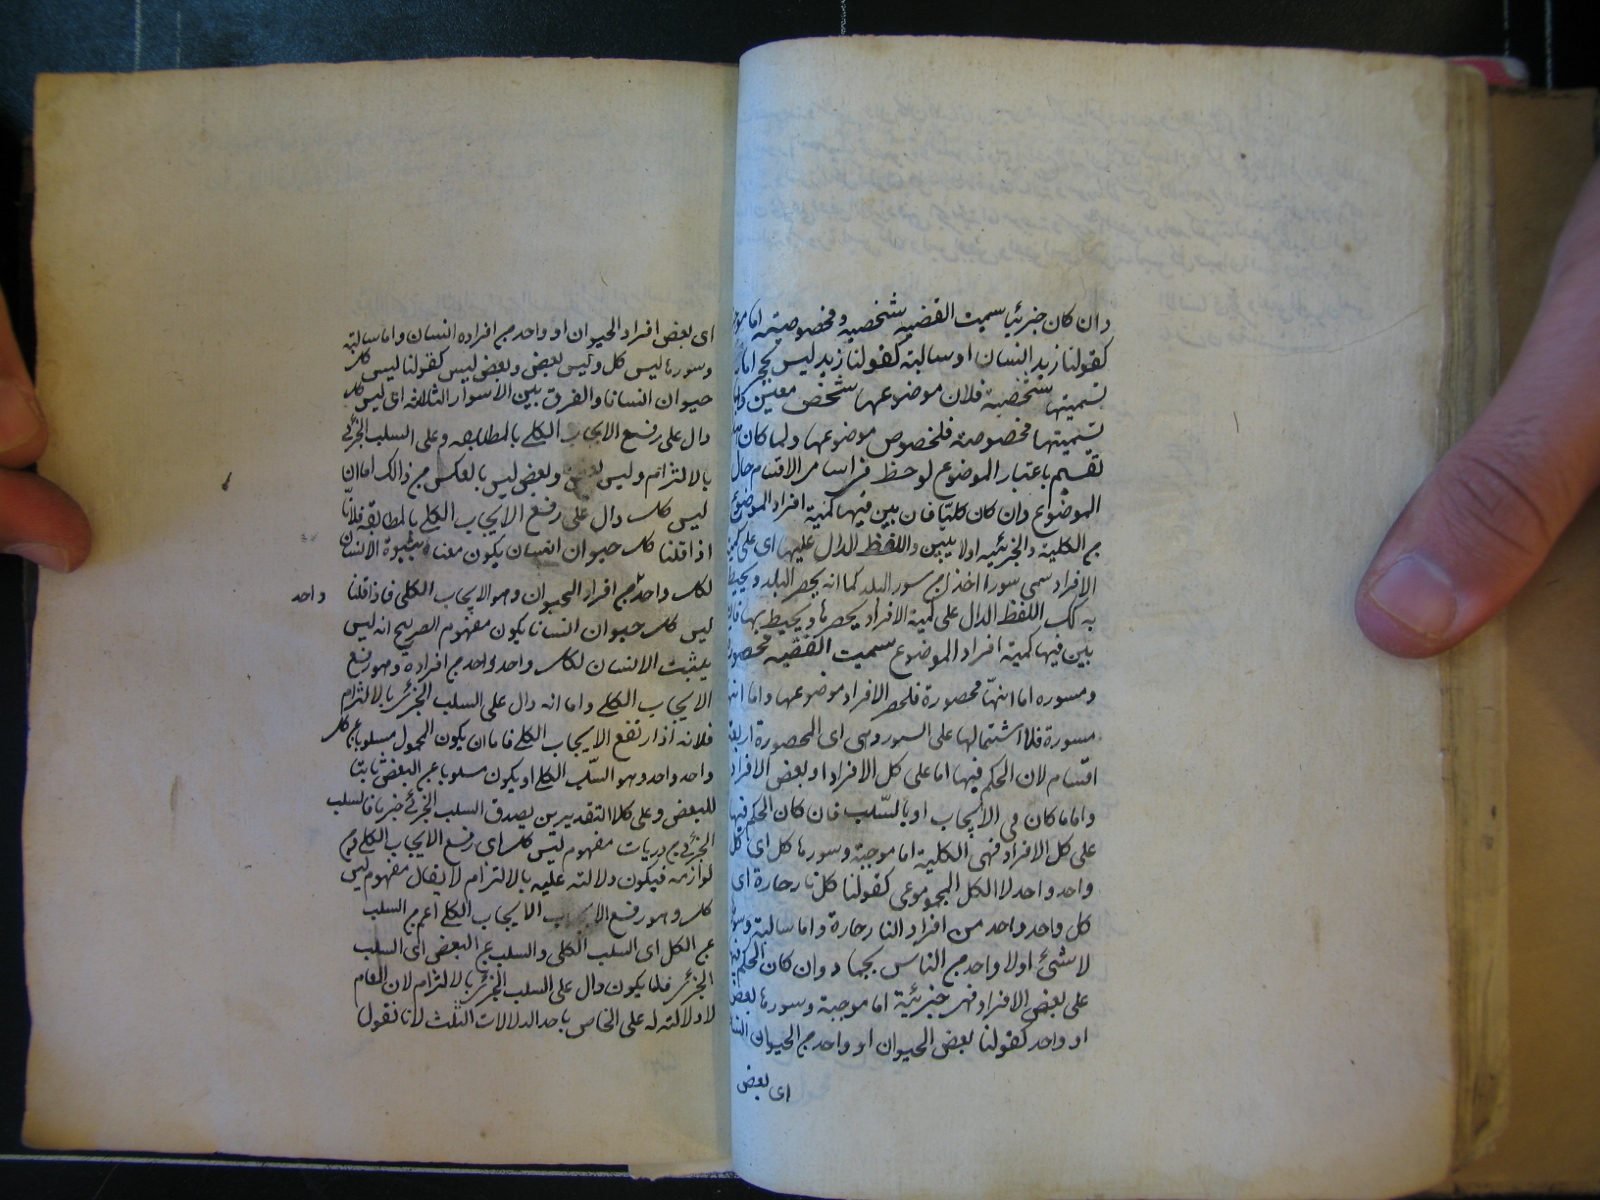 وان كان جزئيا سميت القضيه شخصيه ومخصوصة اما
كقولنا زيد انسان او سالبة كقولنا زيد ليس بحجر اما
تسميتها شخصية فلان موضوعها شخص معين واما
تسميتها مخصوصة فلخصوص موضوعها ولما كان
تقسيم باعتبار الموضوع لوحظ في اسامى الاقسام حال
الموضوع وان كان كليا فان بين فيها كمية افراد الموضوع
من الكلية والجزئيه اولا يبين واللفظ الدال عليها اى على
الافراد سمى سورا اخذ من سور البلد كما انه يحصر البلد ويحيط
به كك اللفظ الدال على كمية الافراد يحصرها ويحيط بها فان
بين فيها كمية افراد الموضوع سميت القضيه محصورة
ومسوره اما انها محصورة فلحصر الافراد موضوعها واما انها
مسورة فلا اشتمالها على السور وهى اى المحصورة اربعة
اقسام لان الحكم فيها اما على كل الافراد او بعض الافراد
واما ما كان فى الايجاب او بالسلب فان كان الحكم فيها
على كل الافراد فهى الكلية اما موجبة وسورها كل اى كل
واحد واحد لا الكل المجموعى كقولنا كل نار حارة اى
كل واحد واحد من افراد النار حارة واما سالبة وسورها
لا شئ اولا واحد من الناس بجماد وان كان الحكم فيها
على بعض الافراد فهى جزئية اما موجبة وسورها بعض
او واحد كقولنا بعض الحيوان او واحد من الحيوان
اى بعض
اى بعض افراد الحيوان او واحد من افراده انسان واما سالبة
وسورها ليس كل وليس بعض وبعض ليس كقولنا ليس كل
حيوان انسانا والفرق بين الاسوار الثلاثه ان ليس كل
دال على رفع الايجاب الكلى بالمطابقه وعلى السلب الجزئى
بالالتزام وليس بعض وبعض ليس بالعكس من ذالك اما ان
ليس كل دال على رفع الايجاب الكلى بالمطابقه فلانا
اذا قلنا كل حيوان انسان يكون معناه ثبوة الانسان
لكل واحد من افراد الحيوان وهو الايجاب الكلى فاذا قلنا
واحد
ليس كل حيوان انسانا يكون مفهوم الصريح انه ليس
يثبت الانسان لكل واحد واحد من افراده وهو رفع
الايجاب الكلى واما انه دال على السلب الجزئى بالالتزام
فلانه اذا رتفع الايجاب الكلى فاما ان يكون المحمول مسلوبا عن كل
واحد واحد وهو السلب الكلى او يكون مسلوبا عن البعض ثابتا
للبعض وعلى كلا التقديرين يصدق السلب الجزئى جزما فالسلب
الجزئى من مفهوم ليس كل اى رفع الايجاب الكلى ومن
لوازمه فيكون دلالته عليه بالالتزام لا يقال مفهوم ليس
كل وهو رفع الايجاب الكلى اعم من السلب
عن الكل اى السلب الكلى والسلب عن البعض اى السلب
الجزئى فلا يكون دال على السلب الجزئى بالالتزام لان العام
لا دلالة له على الخاص باحد الدلالات الثلث لانا نقول